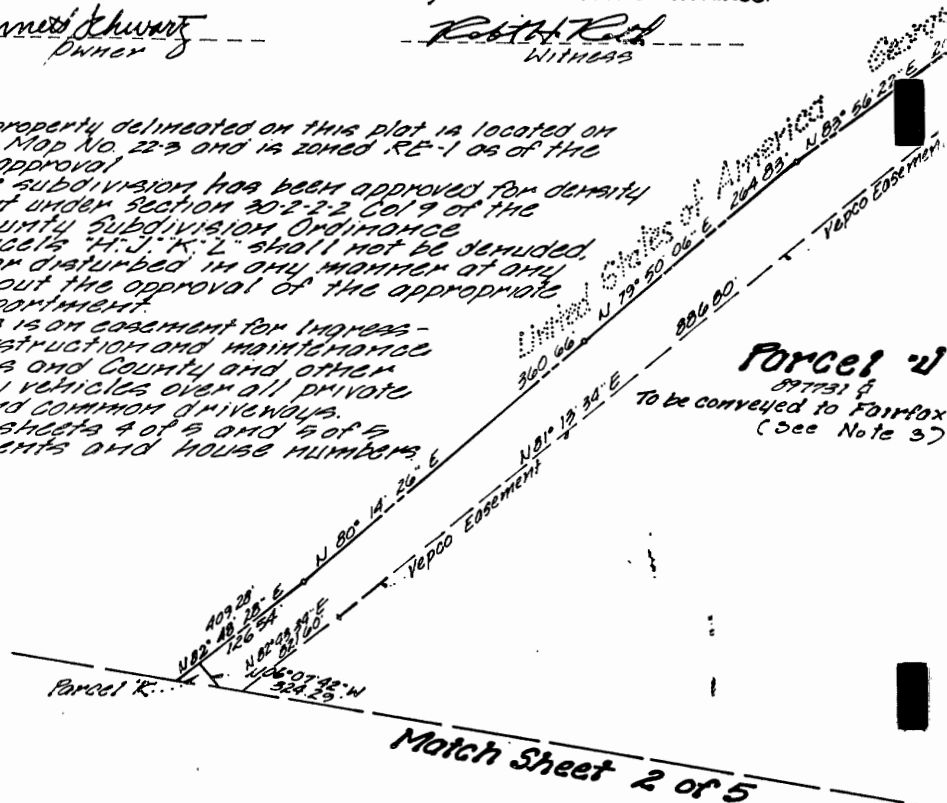 Schwartz
Owner
Witness
property delineated on this plat is located on
Map No. 22-3 and is zoned RE-1 as of the
approval
subdivision has been approved for density
under Section 30-2-2-2 Col 9 of the
unty Subdivision Ordinance
cels "H" "J" "K" "L" shall not be denuded,
or disturbed in any manner at any
out the approval of the appropriate
partment.
is an easement for Ingress-
struction and maintenance
s and County and other
y vehicles over all private
nd common driveways.
sheets 4 of 5 and 5 of 5
ents and house numbers
United States of America
N 83° 56' 22" E
264 83'
N 79° 50' 06" E
360 66'
N 80° 14' 26" E
409.28'
N 82° 48' 28" E
126 54'
Vepco Easement
886 80'
N 81° 13' 34" E
Vepco Easement
N 82° 43' 34" E
N 06° 07' 42" W
324.29'
Parcel "J
897731
To be conveyed to Fairfax
(See Note 3)
Parcel "K"
Match Sheet 2 of 5